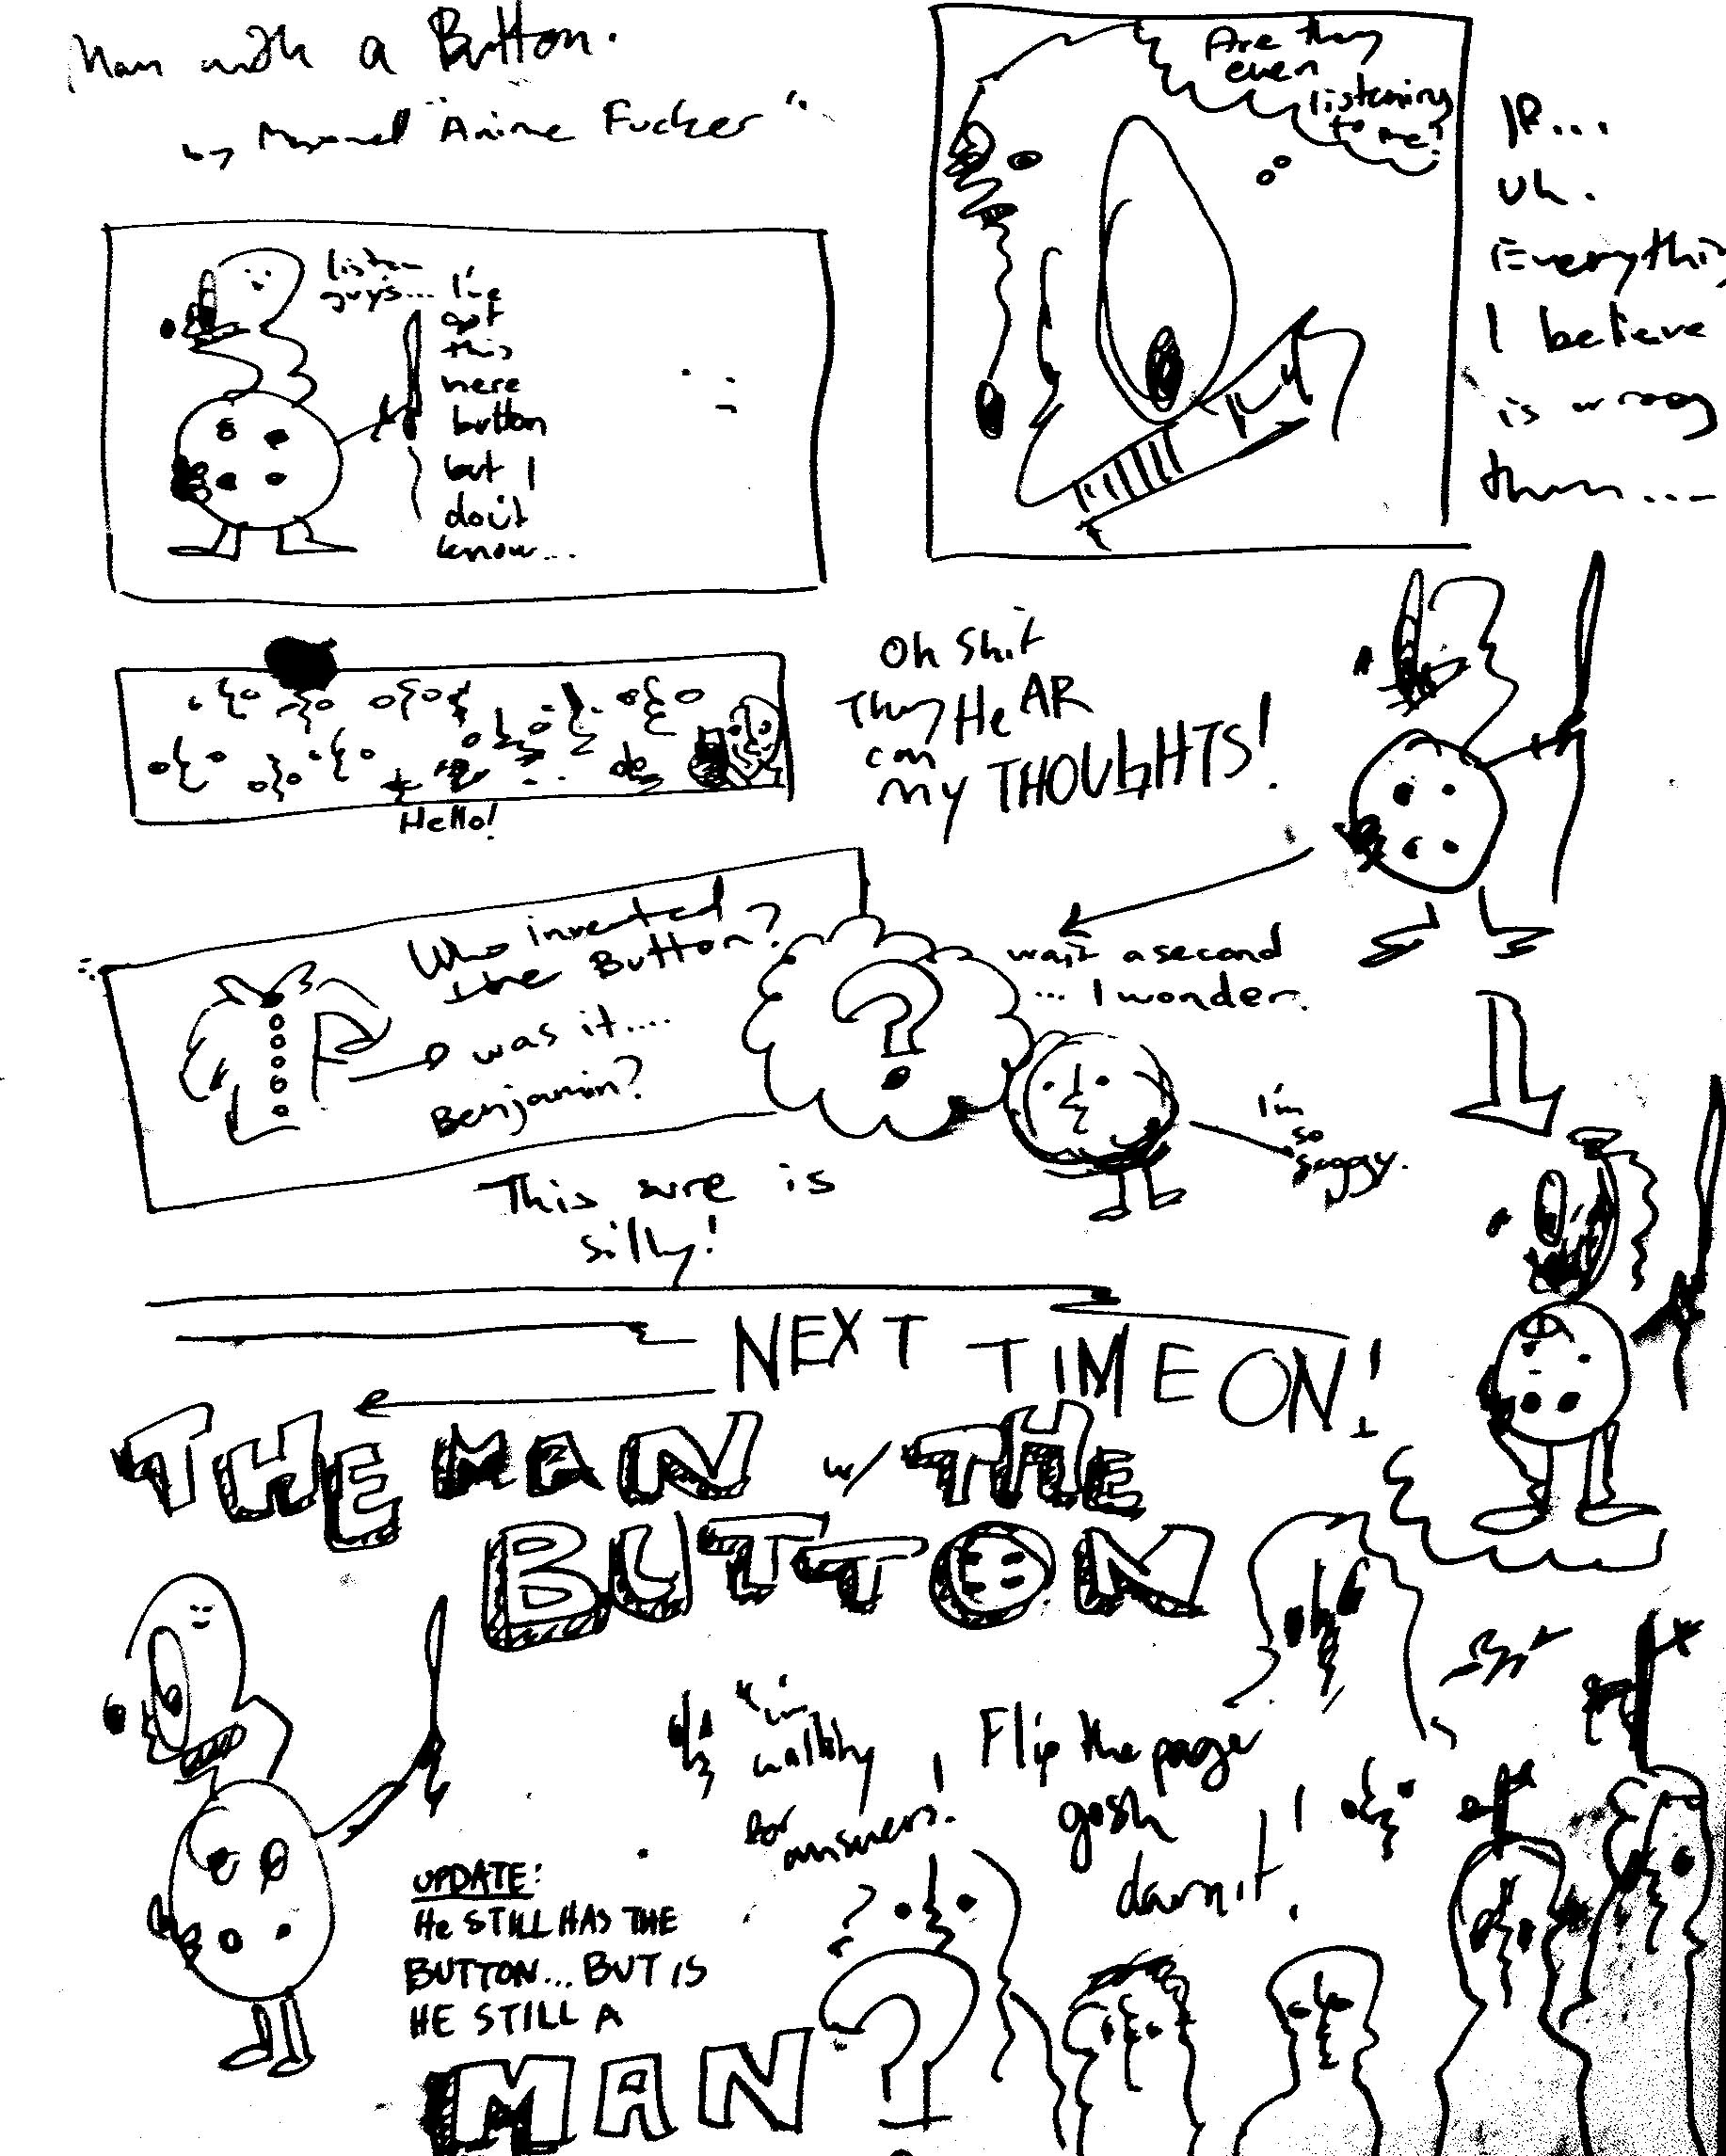 Man with a Button.
by "Anime Fucker"
listen
guys... I've
got
this
here
button
but I
don't
know...
Are they
even
listening
to me?
uh.
Everything
I believe
is wrong
then...
Hello!
Oh Shit
They HeAR
can
my THOUGHTS!
Who invented
the Button?
was it....
Benjamin?
wait a second
... I wonder.
I'm
so
soggy.
This sure is
silly!
NEXT TIME ON!
THE MAN w/ THE
BUTTON
I'm
waiting
for
answers!
Flip the page
gosh
darnit!
UPDATE:
He STILL HAS THE
BUTTON... BUT IS
HE STILL A
MAN?